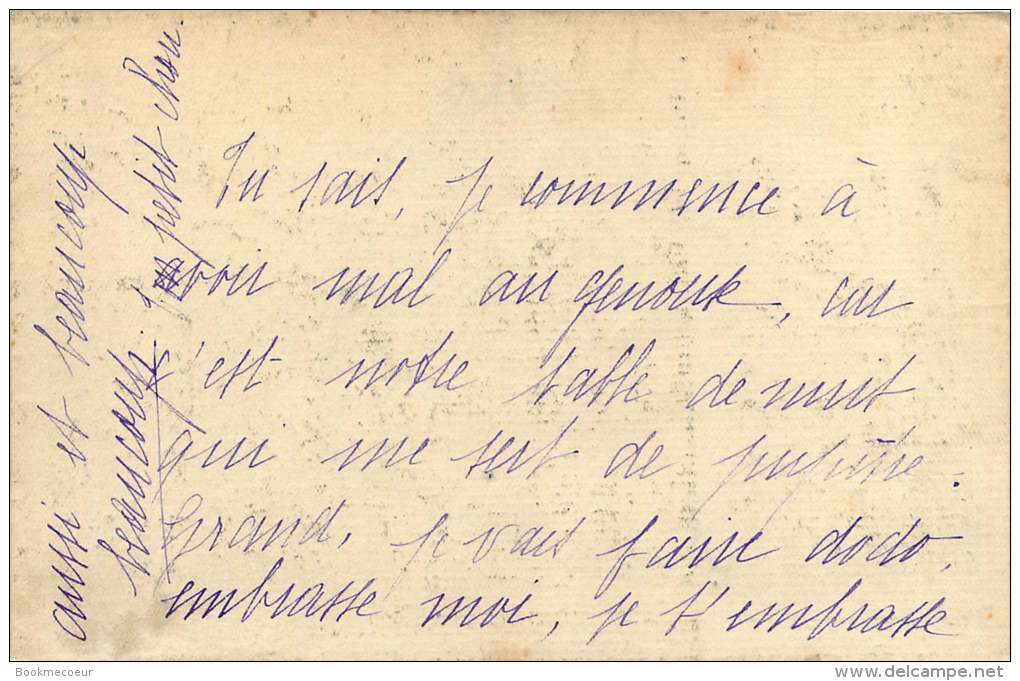 Tu sais, je commence à
avoir mal au genoux, car
c'est notre table de nuit
qui me sert de pupitre.
Grand, je vais faire dodo,
embrasse moi, je t'embrasse
aussi et beaucoup
beaucoup. petit chou
Bookmecoeur
www.delcampe.net